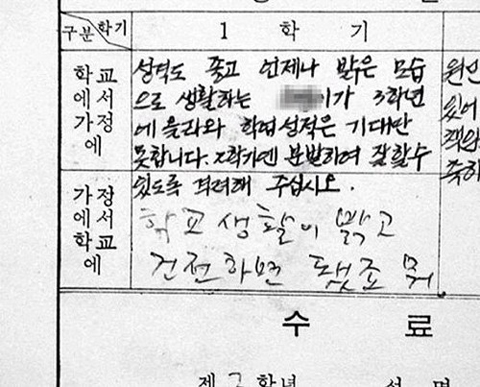 구분 학기
1 학 기
학교
에서
가정
에
성적도 좋고 언제나 밝은 모습
으로 생활하는 이가 3학년
에 올라와 학업성적은 기대만
못합니다. 2학기엔 분발하여 잘할수
있도록 격려해 주십시오.
원인
있어
책임
가정
에서
학교
에
학교생활이 밝고
건전하면 됐죠 뭐
수 료
제 2 학년 성 명